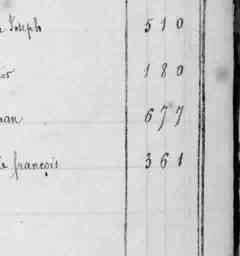 Joseph 510
180
677
françois 361